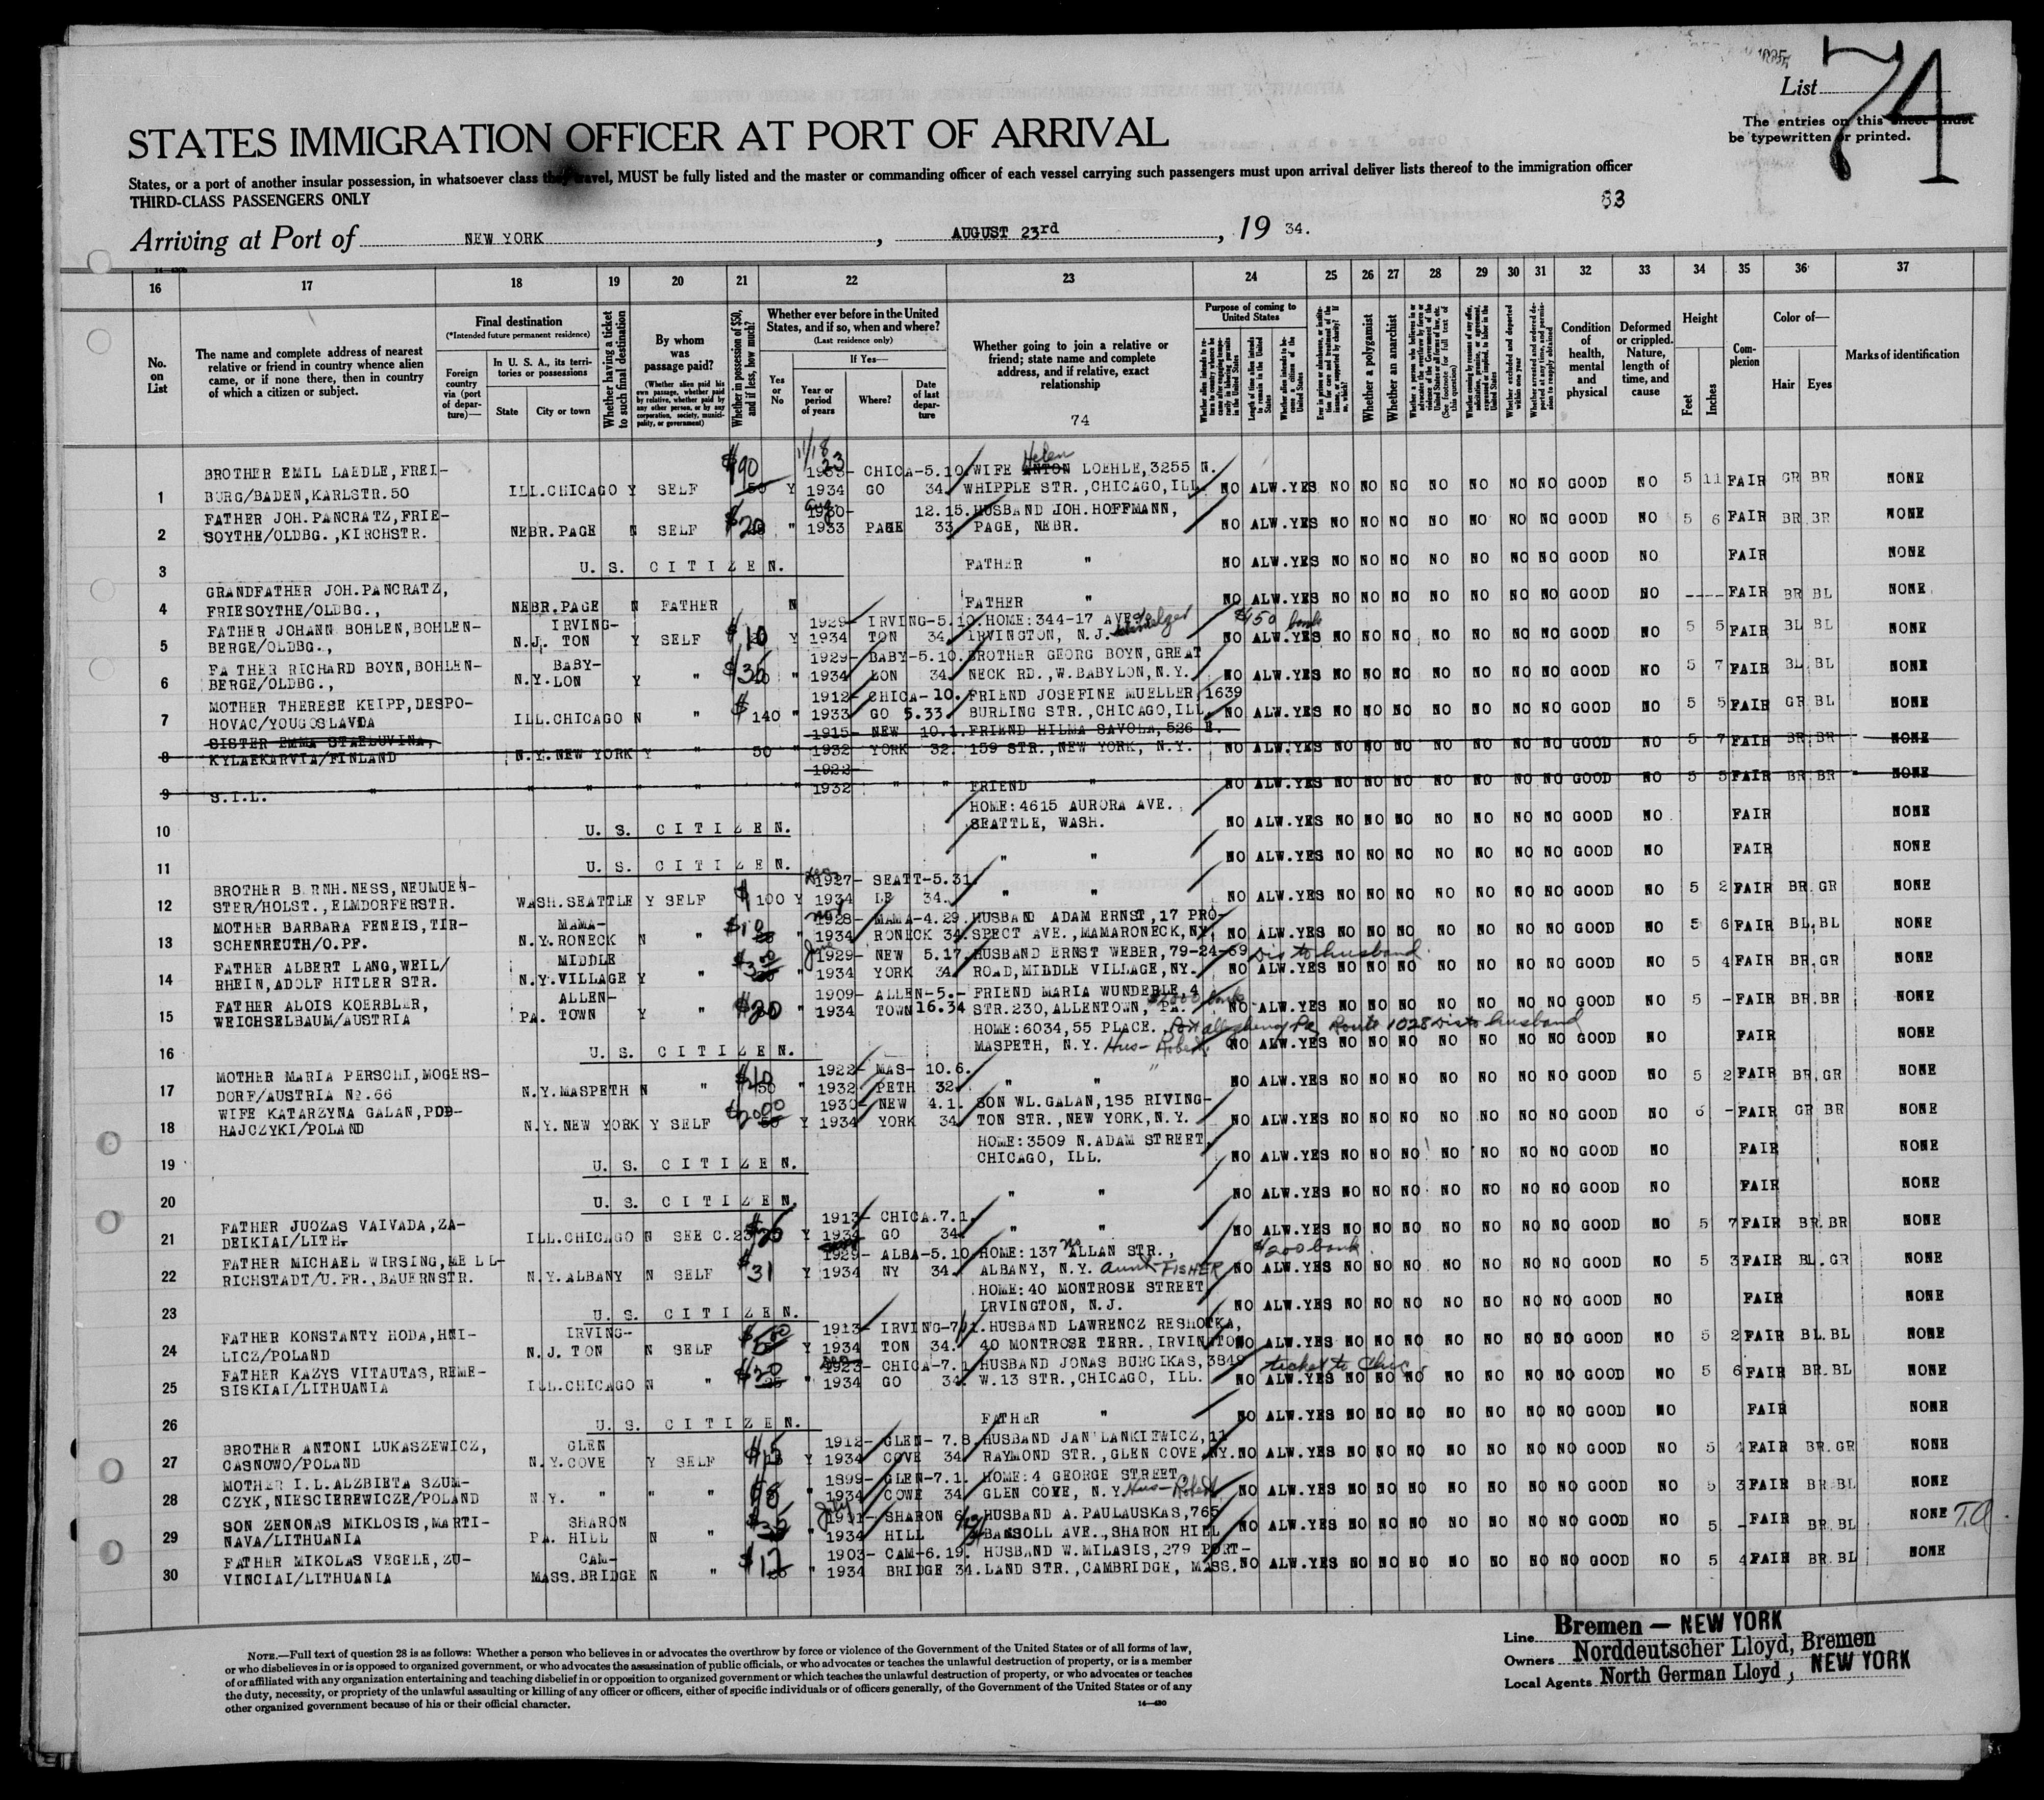 List 74
The entries on this sheet must
be typewritten or printed.
STATES IMMIGRATION OFFICER AT PORT OF ARRIVAL
States, or a port of another insular possession, in whatsoever class they travel, MUST be fully listed and the master or commanding officer of each vessel carrying such passengers must upon arrival deliver lists thereof to the immigration officer
THIRD-CLASS PASSENGERS ONLY
Arriving at Port of NEW YORK, AUGUST 23rd, 19 34.
16 17 18 19 20 21 22 23 24 25 26 27 28 29 30 31 32 33 34 35 36 37
No. on List
The name and complete address of nearest relative or friend in country whence alien came, or if none there, then in country of which a citizen or subject.
Final destination
(*Intended future permanent residence)
Foreign country via (port of departure)—
In U. S. A., its territories or possessions
State
City or town
Whether having a ticket to such final destination
By whom was passage paid?
(Whether alien paid his own passage, whether paid by relative, whether paid by any other person, or by any corporation, society, municipality, or government)
Whether in possession of $50, and if less, how much?
Whether ever before in the United States, and if so, when and where?
(Last residence only)
Yes or No
If Yes—
Year or period of years
Where?
Date of last departure
Whether going to join a relative or friend; state name and complete address, and if relative, exact relationship
74
Purpose of coming to United States
Length of time alien intends to remain in the United States
Whether alien intends to become a citizen of the United States
Whether a polygamist
Whether an anarchist
Condition of health, mental and physical
Deformed or crippled. Nature, length of time, and cause
Height
Feet
Inches
Complexion
Color of—
Hair
Eyes
Marks of identification
BROTHER EMIL LAEDLE, FREI- $90 11/18 23 CHICA-5.10. WIFE Helen ANTON LOEHLE, 3255 N.
1 BURG/BADEN, KARLSTR.50 ILL. CHICAGO Y SELF 50 Y 1934 GO 34. WHIPPLE STR., CHICAGO, ILL. NO ALW. YES NO NO NO NO NO NO NO GOOD NO 5 11 FAIR GR BR NONE
FATHER JOH. PANCRATZ, FRIE- 1930- 12.15. HUSBAND JOH. HOFFMANN,
2 SOYTHE/OLDBG., KIRCHSTR. NEBR. PAGE N SELF $20 " 1933 PAGE 33 PAGE, NEBR. NO ALW. YES NO NO NO NO NO NO NO GOOD NO 5 6 FAIR BR BR NONE
3 U. S. CITIZEN. FATHER " NO ALW. YES NO NO NO NO NO NO NO GOOD NO FAIR NONE
GRANDFATHER JOH. PANCRATZ,
4 FRIESOYTHE/OLDBG., NEBR. PAGE N FATHER N FATHER " NO ALW. YES NO NO NO NO NO NO NO GOOD NO ---- FAIR BR BL NONE
FATHER JOHANN BOHLEN, BOHLEN- IRVING- 1929- IRVING-5.10. HOME: 344-17 AVE. $450 bank
5 BERGE/OLDBG., N.J. TON Y SELF $10 Y 1934 TON 34. IRVINGTON, N.J. NO ALW. YES NO NO NO NO NO NO NO GOOD NO 5 5 FAIR BL BL NONE
FATHER RICHARD BOYN, BOHLEN- BABY- 1929- BABY-5.10. BROTHER GEORG BOYN, GREAT
6 BERGE/OLDBG., N.Y. LON Y " $35 " 1934 LON 34. NECK RD., W. BABYLON, N.Y. NO ALW. YES NO NO NO NO NO NO NO GOOD NO 5 7 FAIR BL BL NONE
MOTHER THERESE KEIPP, DESPO- 1912- CHICA- 10. FRIEND JOSEFINE MUELLER, 1639
7 HOVAC/YOUGOSLAVIA ILL. CHICAGO N " $ 140 " 1933 GO 5.33 BURLING STR., CHICAGO, ILL. NO ALW. YES NO NO NO NO NO NO NO GOOD NO 5 5 FAIR GR BL NONE
SISTER EMMA STAELUVINA, 1915- NEW 10.1. FRIEND HILMA SAVOLA, 526 E.
8 KYLAEKARVIA/FINLAND N.Y. NEW YORK Y " 50 " 1932 YORK 32. 159 STR., NEW YORK, N.Y. NO ALW. YES NO NO NO NO NO NO NO GOOD NO 5 7 FAIR BR BR NONE
1922-
9 S.I.L. " " " " " " 1932 " " FRIEND " NO ALW. YES NO NO NO NO NO NO NO GOOD NO 5 5 FAIR BR BR NONE
HOME: 4615 AURORA AVE.
10 U. S. CITIZEN. SEATTLE, WASH. NO ALW. YES NO NO NO NO NO NO NO GOOD NO FAIR NONE
11 U. S. CITIZEN. " " NO ALW. YES NO NO NO NO NO NO NO GOOD NO FAIR NONE
BROTHER B.RNH. NESS, NEUMUEN- 1927- SEATT-5.31.
12 STER/HOLST., ELMDORFERSTR. WASH. SEATTLE Y SELF $ 100 Y 1934 LE 34. " " NO ALW. YES NO NO NO NO NO NO NO GOOD NO 5 2 FAIR BR. GR NONE
MOTHER BARBARA FENEIS, TIR- MAMA- 1928- MAMA-4.29. HUSBAND ADAM ERNST, 17 PRO-
13 SCHENREUTH/O.PF. N.Y. RONECK N " $10 " 1934 RONECK 34. SPECT AVE., MAMARONECK, NY. NO ALW. YES NO NO NO NO NO NO NO GOOD NO 5 6 FAIR BL. BL NONE
FATHER ALBERT LANG, WEIL/ MIDDLE June 1929- NEW 5.17. HUSBAND ERNST WEBER, 79-24-69 Dis to husband
14 RHEIN, ADOLF HITLER STR. N.Y. VILLAGE Y " " 1934 YORK 34 ROAD, MIDDLE VILLAGE, NY. NO ALW. YES NO NO NO NO NO NO NO GOOD NO 5 4 FAIR BR. GR NONE
FATHER ALOIS KOERBLER, ALLEN- 1909- ALLEN-5.- FRIEND MARIA WUNDERLE, 4
15 WEICHSELBAUM/AUSTRIA PA. TOWN Y " $20 " 1934 TOWN 16.34 STR. 230, ALLENTOWN, PA. NO ALW. YES NO NO NO NO NO NO NO GOOD NO 5 - FAIR BR. BR NONE
HOME: 6034, 55 PLACE. Port Allegheny Pa Route 1028 Dis to husband
16 U. S. CITIZEN. MASPETH, N.Y. Hus- Robert NO ALW. YES NO NO NO NO NO NO NO GOOD NO FAIR NONE
MOTHER MARIA PERSCHI, MOGERS- 1922- MAS- 10.6.
17 DORF/AUSTRIA No. 66 N.Y. MASPETH N " " 1932 PETH 32. " " NO ALW. YES NO NO NO NO NO NO NO GOOD NO 5 2 FAIR BR. GR NONE
WIFE KATARZYNA GALAN, POD- 1930- NEW 4.1. SON WL. GALAN, 185 RIVING-
18 HAJCZYKI/POLAND N.Y. NEW YORK Y SELF Y 1934 YORK 34. TON STR., NEW YORK, N.Y. NO ALW. YES NO NO NO NO NO NO NO GOOD NO 6 - FAIR GR BR NONE
HOME: 3509 N. ADAM STREET,
19 U. S. CITIZEN. CHICAGO, ILL. NO ALW. YES NO NO NO NO NO NO NO GOOD NO FAIR NONE
20 U. S. CITIZEN. " " NO ALW. YES NO NO NO NO NO NO NO GOOD NO FAIR NONE
FATHER JUOZAS VAIVADA, ZA- 1913- CHICA. 7.1.
21 DEIKIAI/LITH. ILL. CHICAGO N SEE C. 23 Y 1934 GO 34. " " NO ALW. YES NO NO NO NO NO NO NO GOOD NO 5 7 FAIR BR. BR NONE
FATHER MICHAEL WIRSING, MELL- 1929- ALBA-5.10. HOME: 137 No ALLAN STR., $200 bank
22 RICHSTADT/U.FR., BAUERNSTR. N.Y. ALBANY N SELF $31 Y 1934 NY 34. ALBANY, N.Y. aunt FISHER NO ALW. YES NO NO NO NO NO NO NO GOOD NO 5 3 FAIR BL. GR NONE
HOME: 40 MONTROSE STREET
23 U. S. CITIZEN. IRVINGTON, N.J. NO ALW. YES NO NO NO NO NO NO NO GOOD NO FAIR NONE
FATHER KONSTANTY HODA, HNI- IRVING- 1913- IRVING-7.1. HUSBAND LAWRENCZ RESHOTKA,
24 LICZ/POLAND N.J. TON N SELF Y 1934 TON 34. 40 MONTROSE TERR., IRVINGTON NO ALW. YES NO NO NO NO NO NO NO GOOD NO 5 2 FAIR BL. BL NONE
FATHER KAZYS VITAUTAS, REME- 1923- CHICA-7.1. HUSBAND JONAS BURCIKAS, 3849 ticket to Chic
25 SISKIAI/LITHUANIA ILL. CHICAGO N " $20 " 1934 GO 34. W. 13 STR., CHICAGO, ILL. NO ALW. YES NO NO NO NO NO NO NO GOOD NO 5 6 FAIR BR. BL NONE
26 U. S. CITIZEN. FATHER " NO ALW. YES NO NO NO NO NO NO NO GOOD NO FAIR NONE
BROTHER ANTONI LUKASZEWICZ, GLEN 1912- GLEN- 7.8. HUSBAND JAN LANKIEWICZ, 11
27 CASNOWO/POLAND N.Y. COVE Y SELF Y 1934 COVE 34 RAYMOND STR., GLEN COVE, NY. NO ALW. YES NO NO NO NO NO NO NO GOOD NO 5 4 FAIR BR. GR NONE
MOTHER I.L. ALZBIETA SZUM- 1899- GLEN-7.1. HOME: 4 GEORGE STREET
28 CZYK, NIESCIEREWICZE/POLAND N.Y. " " " " 1934 COWE 34 GLEN COVE, N.Y. Hus- Robert NO ALW. YES NO NO NO NO NO NO NO GOOD NO 5 3 FAIR BR. BL NONE
SON ZENONAS MIKLOSIS, MARTI- SHARON July 1911- SHARON 6. HUSBAND A. PAULAUSKAS, 765
29 NAVA/LITHUANIA PA. HILL N " " 1934 HILL BANSOLL AVE., SHARON HILL NO ALW. YES NO NO NO NO NO NO NO GOOD NO 5 - FAIR BR. BL NONE
FATHER MIKOLAS VEGELE, ZU- CAM- 1903- CAM-6.19. HUSBAND W. MILASIS, 279 PORT-
30 VINCIAI/LITHUANIA MASS. BRIDGE N " $17 " 1934 BRIDGE 34. LAND STR., CAMBRIDGE, MASS. NO ALW. YES NO NO NO NO NO NO NO GOOD NO 5 4 FAIR BR. BL NONE
NOTE.—Full text of question 28 is as follows: Whether a person who believes in or advocates the overthrow by force or violence of the Government of the United States or of all forms of law,
or who disbelieves in or is opposed to organized government, or who advocates the assassination of public officials, or who advocates or teaches the unlawful destruction of property, or is a member
of or affiliated with any organization entertaining and teaching disbelief in or opposition to organized government or which teaches the unlawful destruction of property, or who advocates or teaches
the duty, necessity, or propriety of the unlawful assaulting or killing of any officer or officers, either of specific individuals or of officers generally, of the Government of the United States or of any
other organized government because of his or their official character.
14—430
Line Bremen — NEW YORK
Owners Norddeutscher Lloyd, Bremen
Local Agents North German Lloyd, NEW YORK